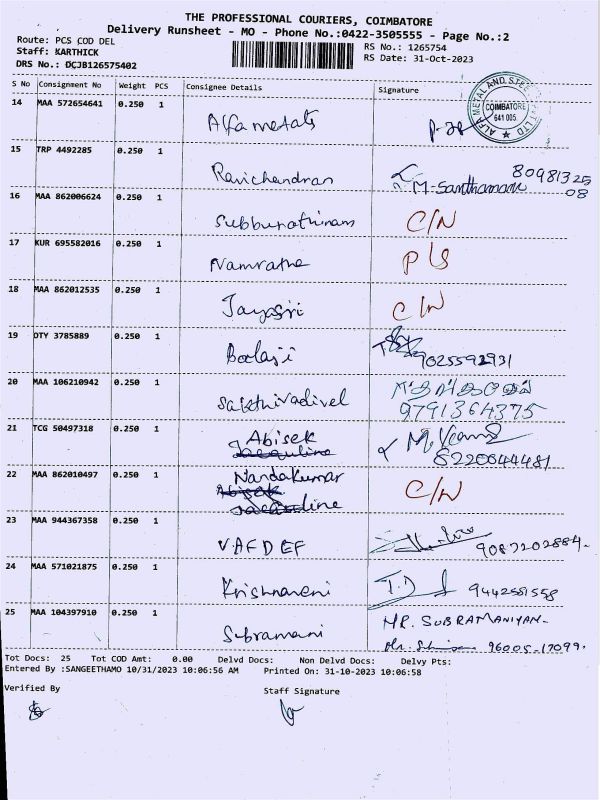 THE PROFESSIONAL COURIERS, COIMBATORE
Delivery Runsheet - MO - Phone No.:0422-3505555 - Page No.:2
Route: PCS COD DEL
Staff: KARTHICK
DRS No.: DCJB126575402
RS No.: 1265754
RS Date: 31-Oct-2023
S No Consignment No Weight PCS Consignee Details Signature
14 MAA 572654641 0.250 1 Alfa metals
ALFA METAL AND STEEL PVT LTD COIMBATORE 641 005.
15 TRP 4492285 0.250 1 Ravichandran 80981325
08
16 MAA 862006624 0.250 1 Subburathinam C/N
17 KUR 695582016 0.250 1 Namratha P/S
18 MAA 862012535 0.250 1 Jayasri C/N
19 DTY 3785889 0.250 1 Baalaji
9025592931
20 MAA 106210942 0.250 1 Sakthivadivel
9791364375
21 TCG 50497318 0.250 1 Abisek
Jaequline 8220644481
22 MAA 862010497 0.250 1 Nandakumar C/N
Abisek
23 MAA 944367358 0.250 1 VAFDEF 9087202884.
24 MAA 571021875 0.250 1 Krishnaveni 9442551558
25 MAA 104397910 0.250 1 Subramani MR. SUBRAMANIYAN.
96005-17099.
Tot Docs: 25 Tot COD Amt: 0.00 Delvd Docs: Non Delvd Docs: Delvy Pts:
Entered By :SANGEETHAMO 10/31/2023 10:06:56 AM Printed On: 31-10-2023 10:06:58
Verified By Staff Signature